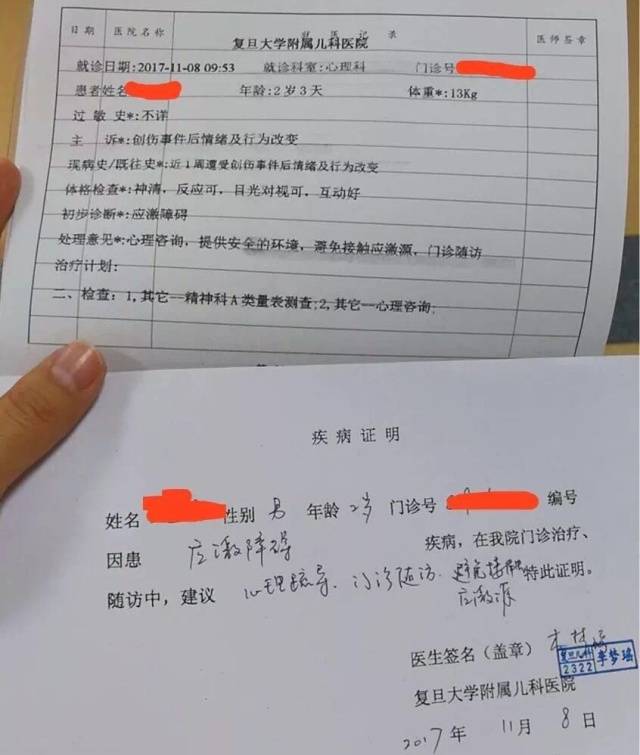 日期 医院名称 记录 医师签章
复旦大学附属儿科医院
就诊日期:2017-11-08 09:53 就诊科室:心理科 门诊号
患者姓名 年龄:2岁3天 体重*:13Kg
过敏史*:不详
主诉*:创伤事件后情绪及行为改变
现病史/既往史*:近1周遭受创伤事件后情绪及行为改变
体格检查*:神清,反应可,目光对视可,互动好
初步诊断*:应激障碍
处理意见*:心理咨询,提供安全的环境,避免接触应激源,门诊随访
治疗计划:
二、检查:1,其它--精神科A类量表测查;2,其它--心理咨询;
疾病证明
姓名 性别 男 年龄 2岁 门诊号 编号
因患 应激障碍 疾病,在我院门诊治疗、
随访中,建议 心理疏导、门诊随访.避免接触应激源 特此证明。
医生签名(盖章)
复旦儿科 2322 李梦瑶
复旦大学附属儿科医院
2017年 11月 8日